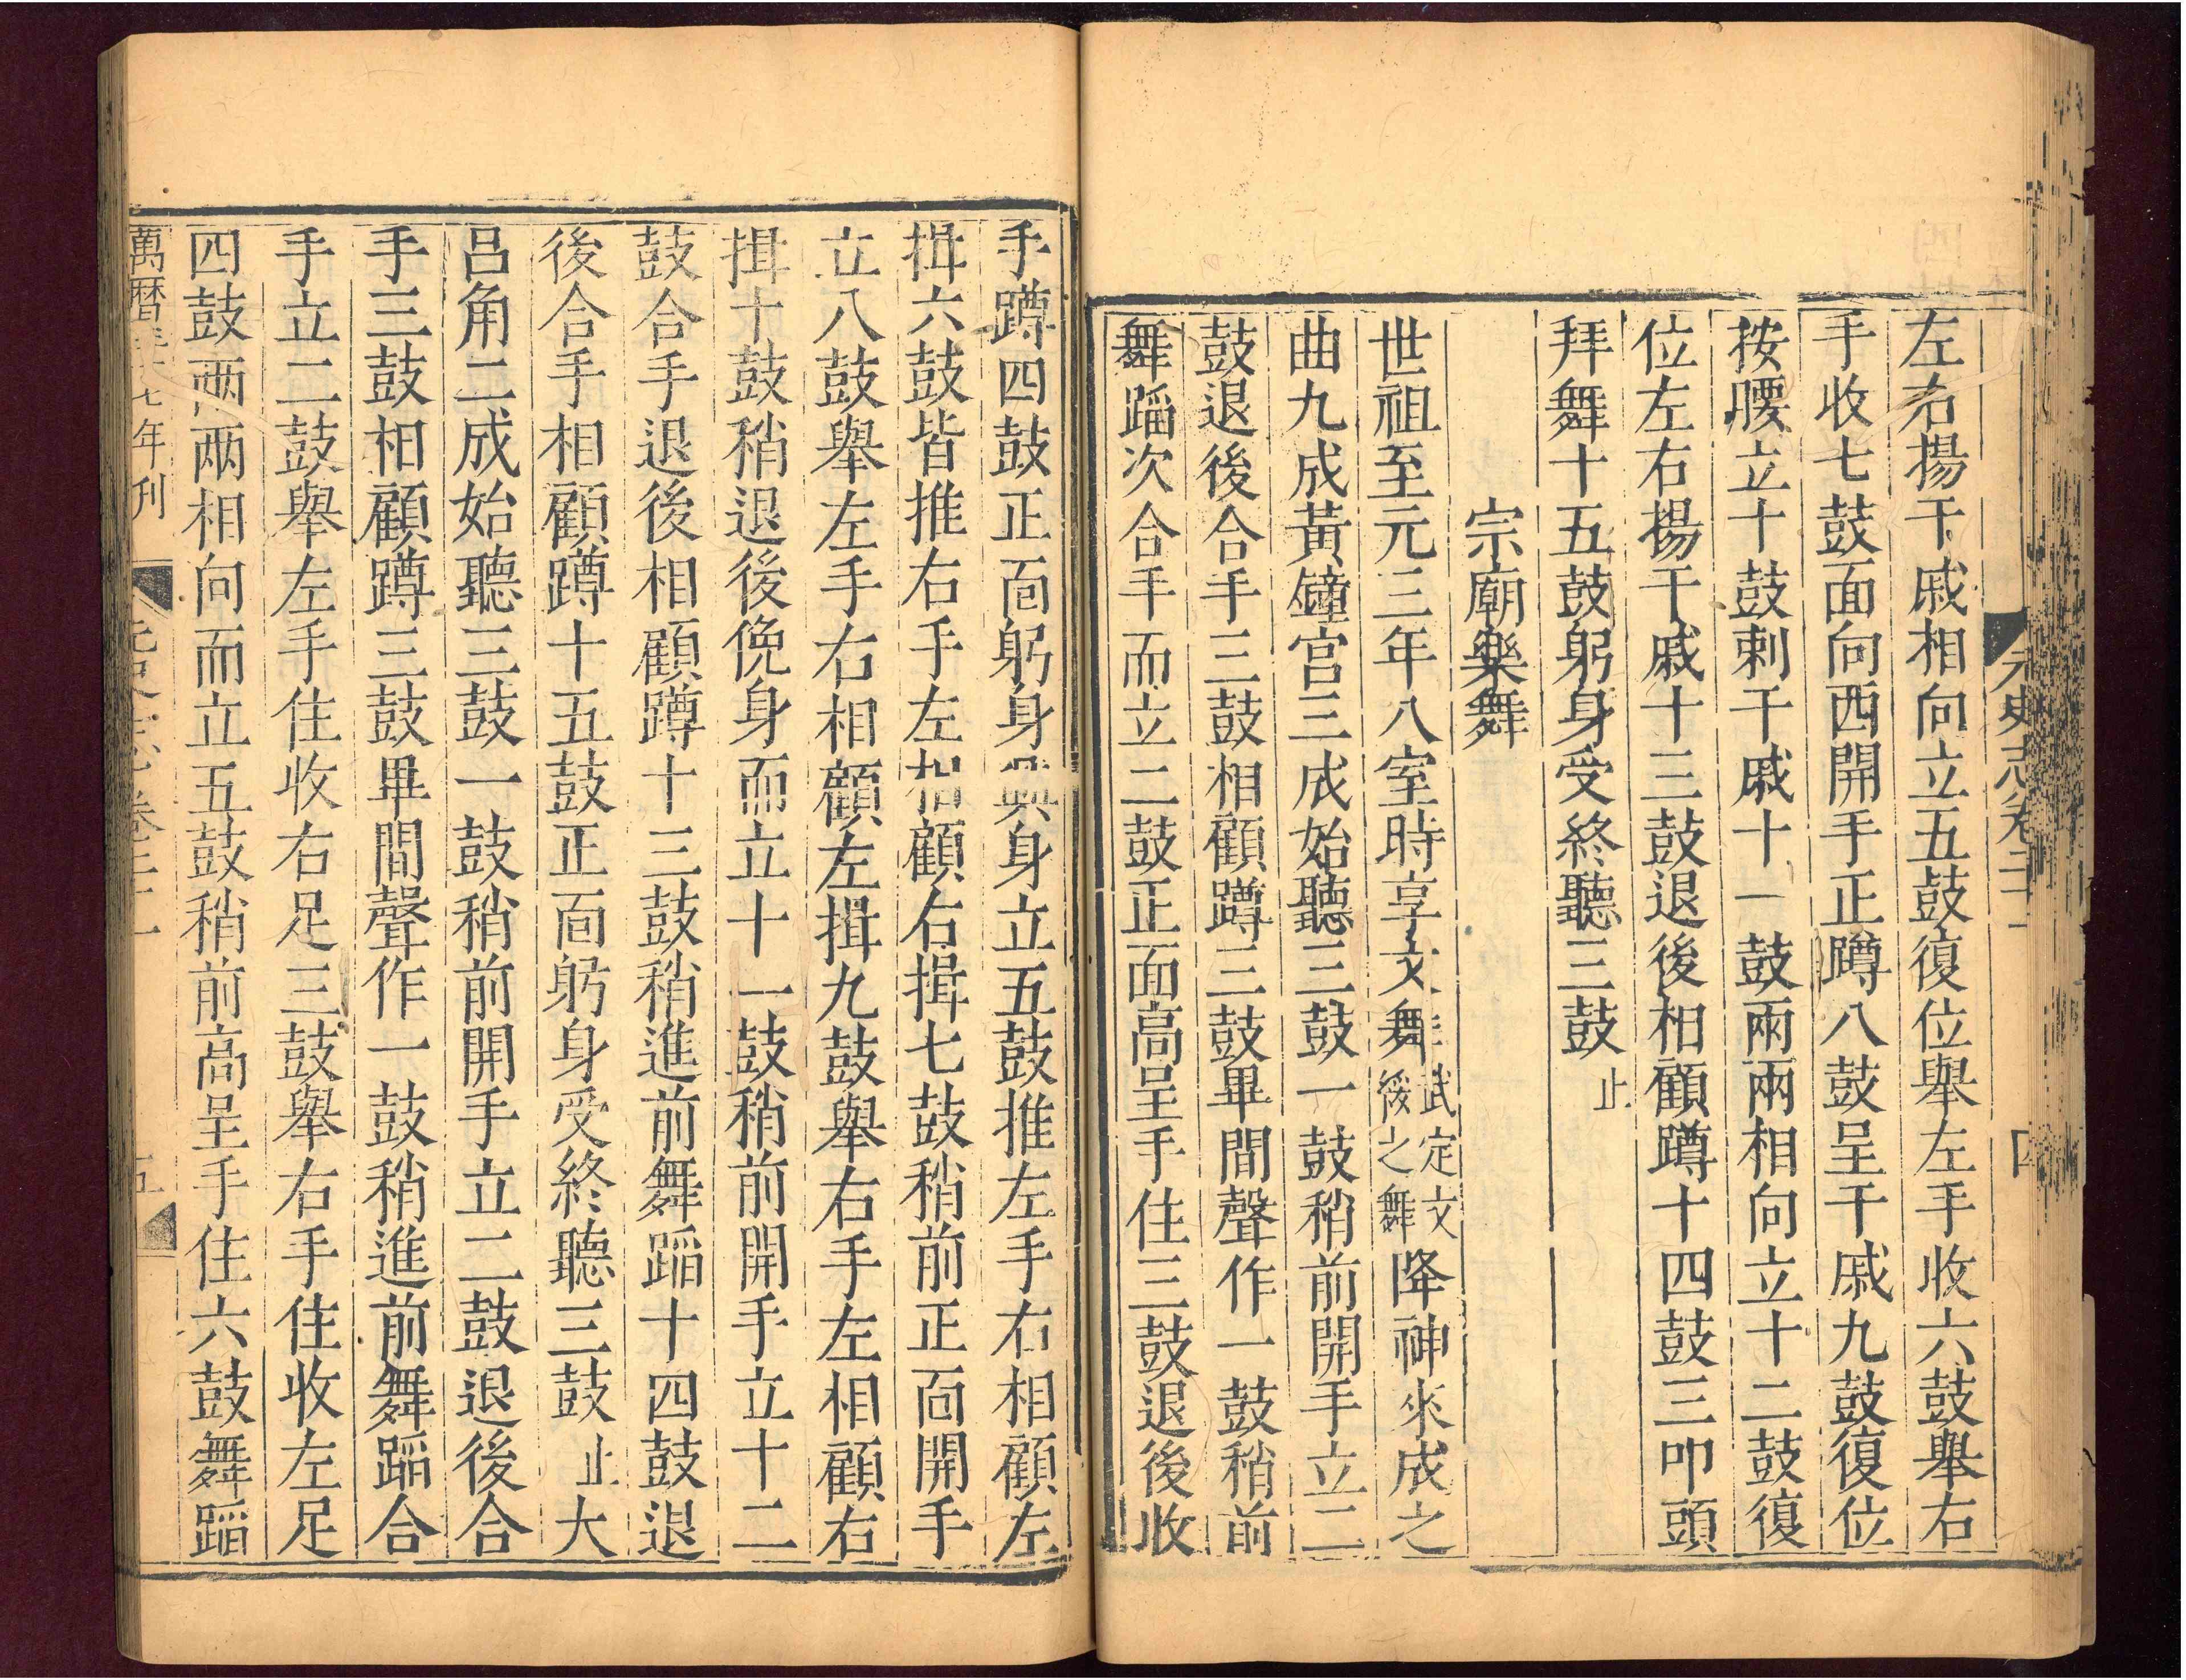 元史志卷二十一
左右揚干戚相向立五鼓復位舉左手收六鼓舉右
手收七鼓面向西開手正蹲八鼓呈干戚九鼓復位
按腰立十鼓刺干戚十一鼓兩兩相向立十二鼓復
位左右揚干戚十三鼓退後相顧蹲十四鼓三叩頭
拜舞十五鼓躬身受終聽三鼓止
宗廟樂舞
世祖至元三年八室時享文舞武定文綏之舞降神來成之
曲九成黃鐘宮三成始聽三鼓一鼓稍前開手立二
鼓退後合手三鼓相顧蹲三鼓畢間聲作一鼓稍前
舞蹈次合手而立二鼓正面高呈手住三鼓退後收
手蹲四鼓正面躬身興身立五鼓推左手右相顧左
揖六鼓皆推右手左相顧右揖七鼓稍前正面開手
立八鼓舉左手右相顧左揖九鼓舉右手左相顧右
揖十鼓稍退後俛身而立十一鼓稍前開手立十二
鼓合手退後相顧蹲十三鼓稍進前舞蹈十四鼓退
後合手相顧蹲十五鼓正面躬身受終聽三鼓止大
呂角二成始聽三鼓一鼓稍前開手立二鼓退後合
手三鼓相顧蹲三鼓畢間聲作一鼓稍進前舞蹈合
手立二鼓舉左手住收右足三鼓舉右手住收左足
四鼓兩兩相向而立五鼓稍前高呈手住六鼓舞蹈
萬曆三十七年刊 元史志卷二十一 五